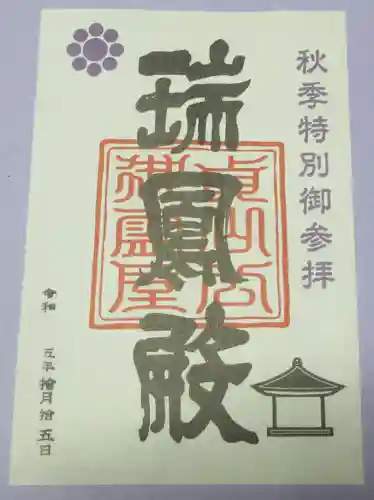 秋季特別御参拝
瑞鳳殿
貞山公
御霊屋
令和五年拾月拾五日